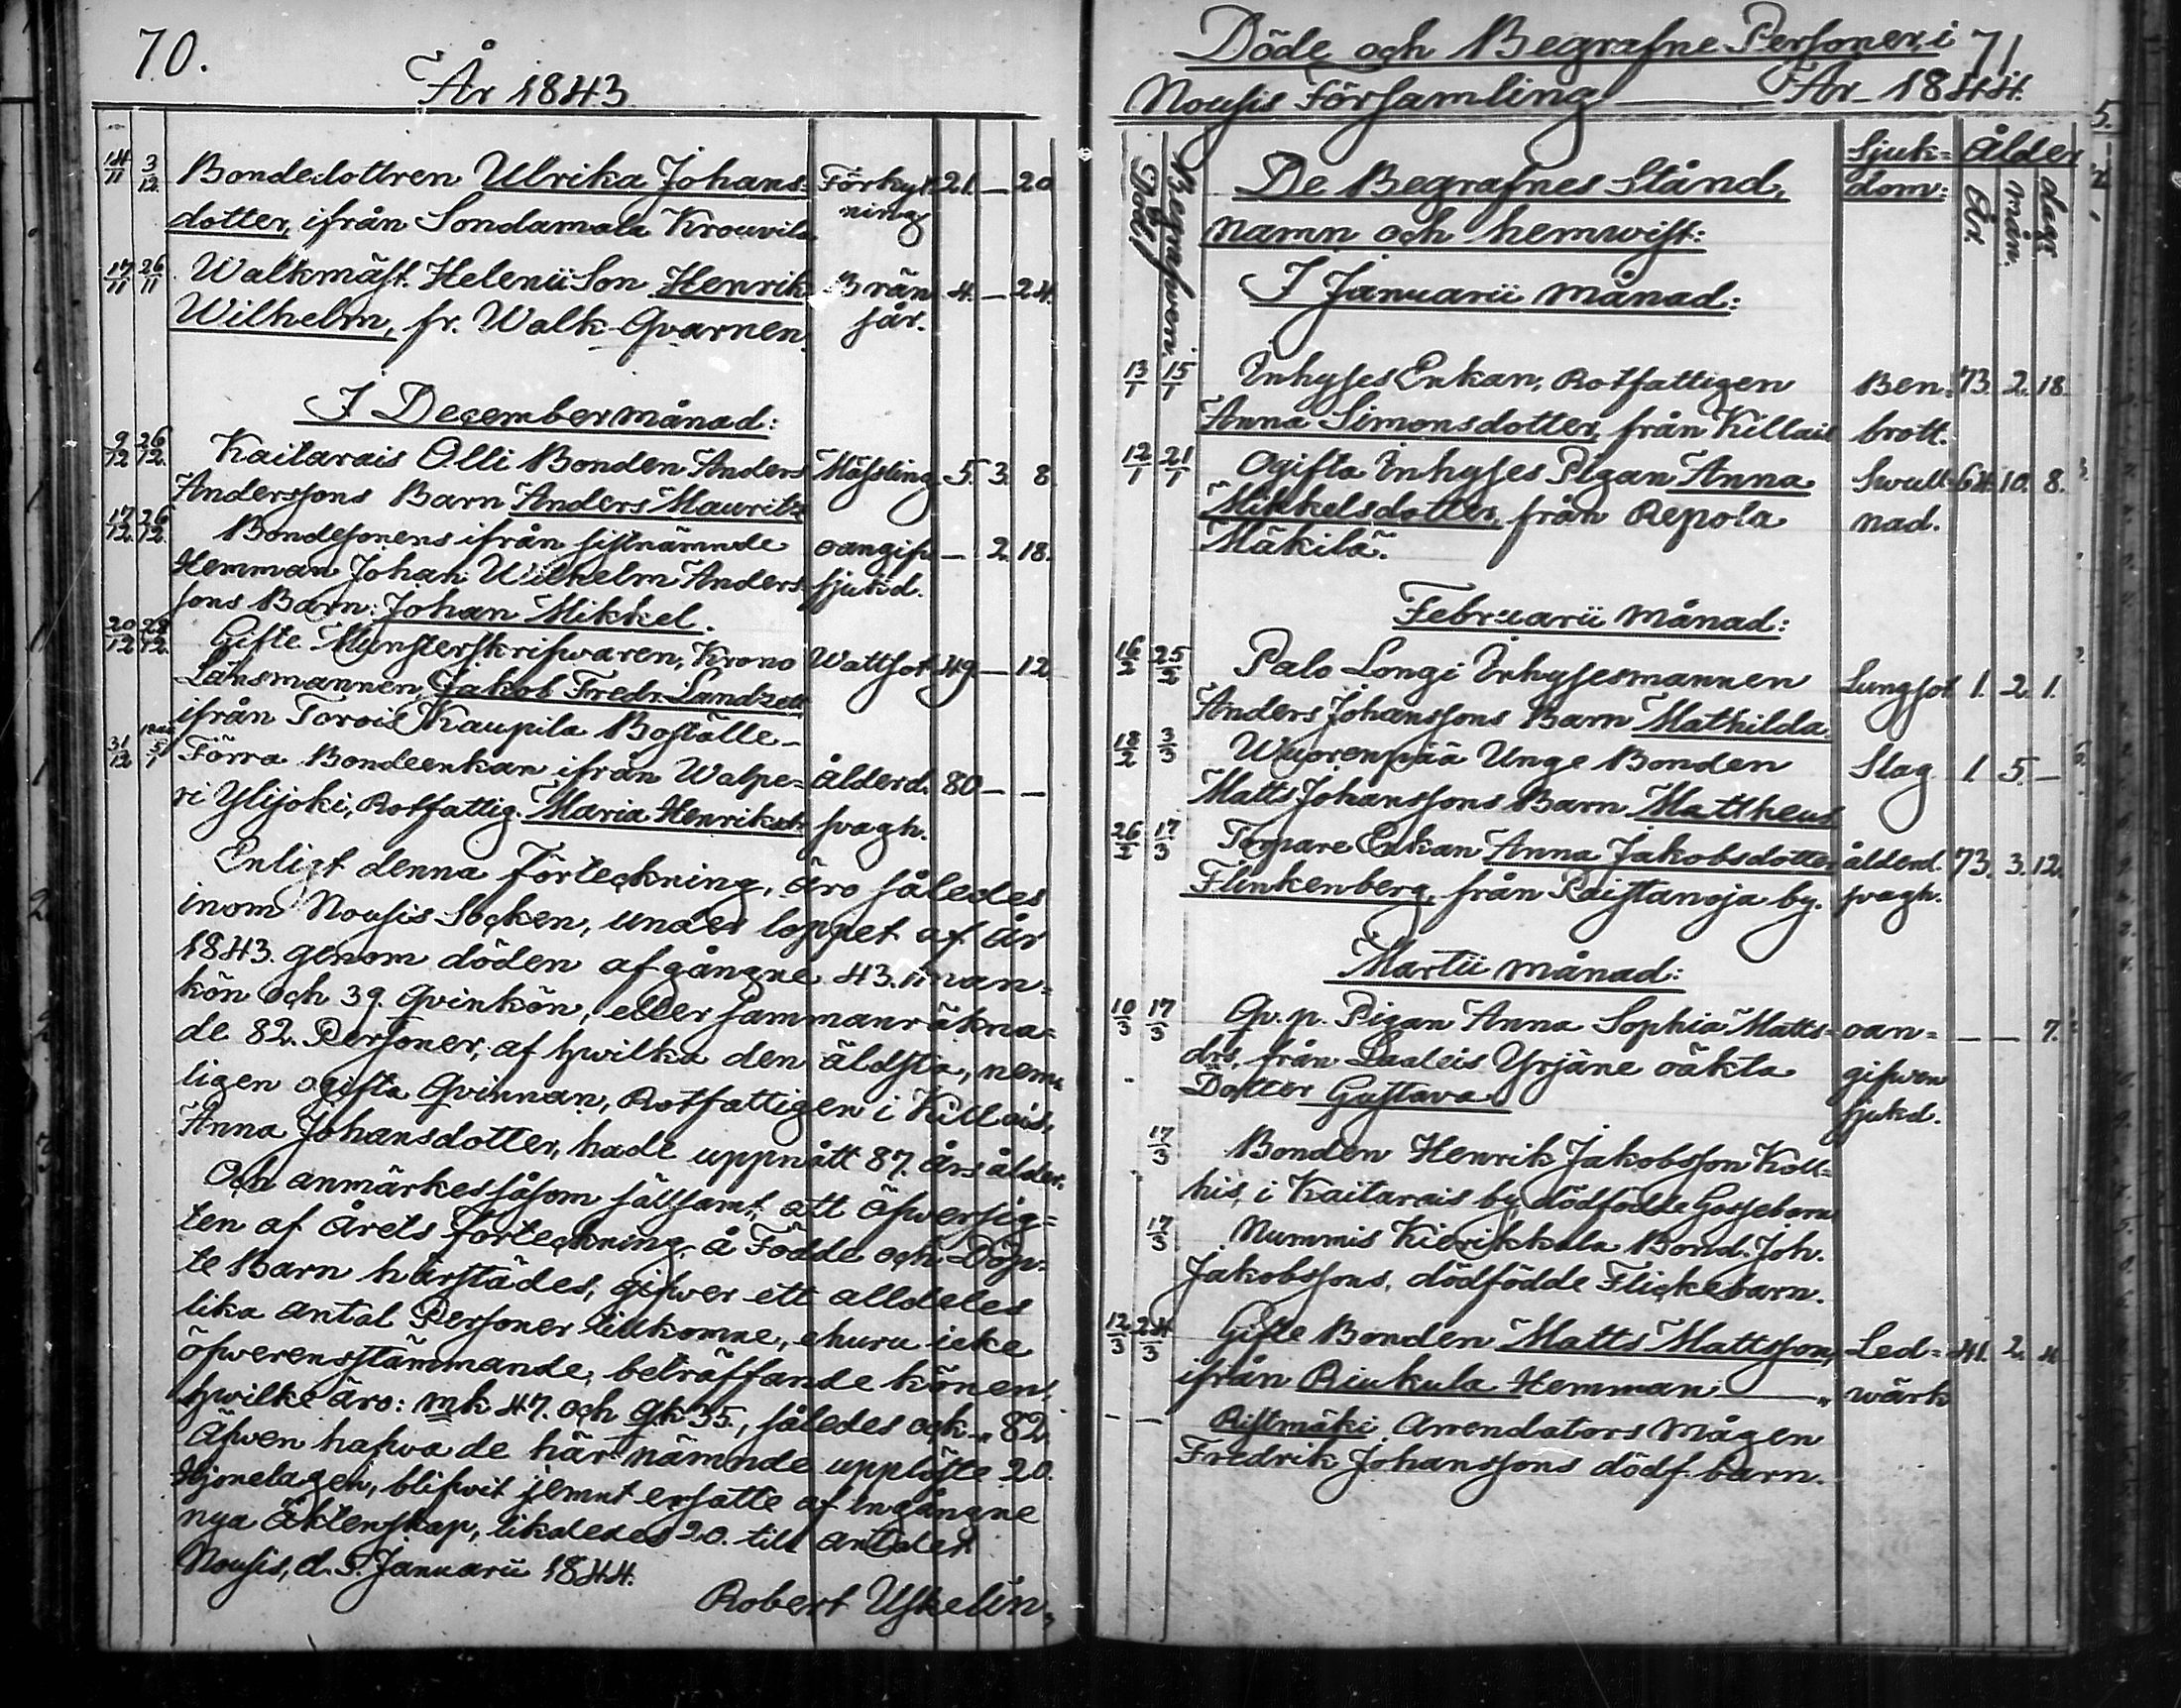 70.
År 1843
14/11 3/12. Bondedottren Ulrika Johans= Förkyl= 21. — 20
dotter, ifrån Sondamala Krouvila ning
17/11 26/11 Walkmäst. Helenii Son Henrik Brän 4. — 24.
Wilhelm, fr. Walk-Qvarnen. sår.
I December månad:
9/12 26/12. Kaitarais Olli Bonden Anders Mässling 5. 3. 8.
Anderssons Barn Anders Mauritz
17/12. 26/12. Bondesonens ifrån sistnämnde oangifv. — 2. 18.
Hemman Johan Wilhelm Anders= sjukd.
sons Barn: Johan Mikkel.
20/12 28/12. Gifte Mynsterskrifwaren, Krono Wattsot 49 — 12
Länsmannen, Jakob Fredr. Landzett
ifrån Torois Kaupila Boställe —
31/12 5/1 Förra Bondeenkan ifrån Walpe= Ålderd. 80 — —
ri Ylijoki, Rotfattig. Maria Henriksdr svagh.
Enligt denna Förteckning, äro således
inom Nousis Socken, under loppet af år
1843. genom döden afgångne 43. man=
kön och 39. qvinkön, eller sammanräkna=
de 82. Personer, af hwilka den äldsta, nem=
ligen ogifta Qvinnan, Rotfattigen i Killais,
Anna Johansdotter, hade uppnått 87. års ålder.
Och anmärkes såsom sällsamt, att öfwersig=
ten af årets förteckning å Födde och Döp=
te Barn härstädes, gifwer ett alldeles
lika antal Personer tillkomne, ehuru icke
öfwerensstämmande, beträffande könen,
hwilke äro: mk 47. och qk 35., således ock „ 82.
Äfwen hafwa de här nämnde upplöste 20.
Hjonelagen, blifwit jemnt ersatte af ingångne
nya Äktenskap, likaledes 20. till antalet.
Nousis, d. 5. Januarii 1844.
Robert Uskelin
Döde och Begrafne Personer i 71
Nousis Församling — År 1844.
Död! Begrafwen. De Begrafnes Stånd, Sjuk= dom: Ålder År. mån. dagr
namn och hemwist:
I Januarii månad:
13/1 15/1 Inhyses Enkan, Rotfattigen Ben= 73. 2. 18.
Anna Simonsdotter, från Killais brott.
12/1 21/1 Ogifta Inhyses Pigan Anna Swull= 64. 10. 8.
Mikkelsdotter, från Repola nad.
Mäkilä.
Februarii månad:
16/2 25/2 Palo Longi Inhysesmannen Lungsot 1. 2. 1.
Anders Johanssons Barn Mathilda.
18/2 3/3 Wuorenpää Unge Bonden Slag 1 5. —
Matts Johanssons Barn Mattheus
26/2 17/3 Torpare Enkan Anna Jakobsdotter ålderd. 73. 3. 12.
Flinkenberg, från Paistanoja by. svagh.
Martii månad:
10/3 17/3 Qv. p. Pigan Anna Sophia Matts= oan= — — 7.
drs. från Laaleis Yrjäne oäkta gifwen
Dotter Gustava sjukd.
17/3 Bonden Henrik Jakobsson Koll=
his, i Kaitarais by, dödfödde Gossebarn
17/3 Nummis Kierikkala Bond. Joh.
Jakobssons, dödfödde Flickebarn.
12/3 24/3 Gifte Bonden Matts Mattsson, Led= 41. 2. 4.
ifrån Riukula Hemman — „ wärk
— — Ristmäki Arrendators Mågen
Fredrik Johanssons dödf. barn.